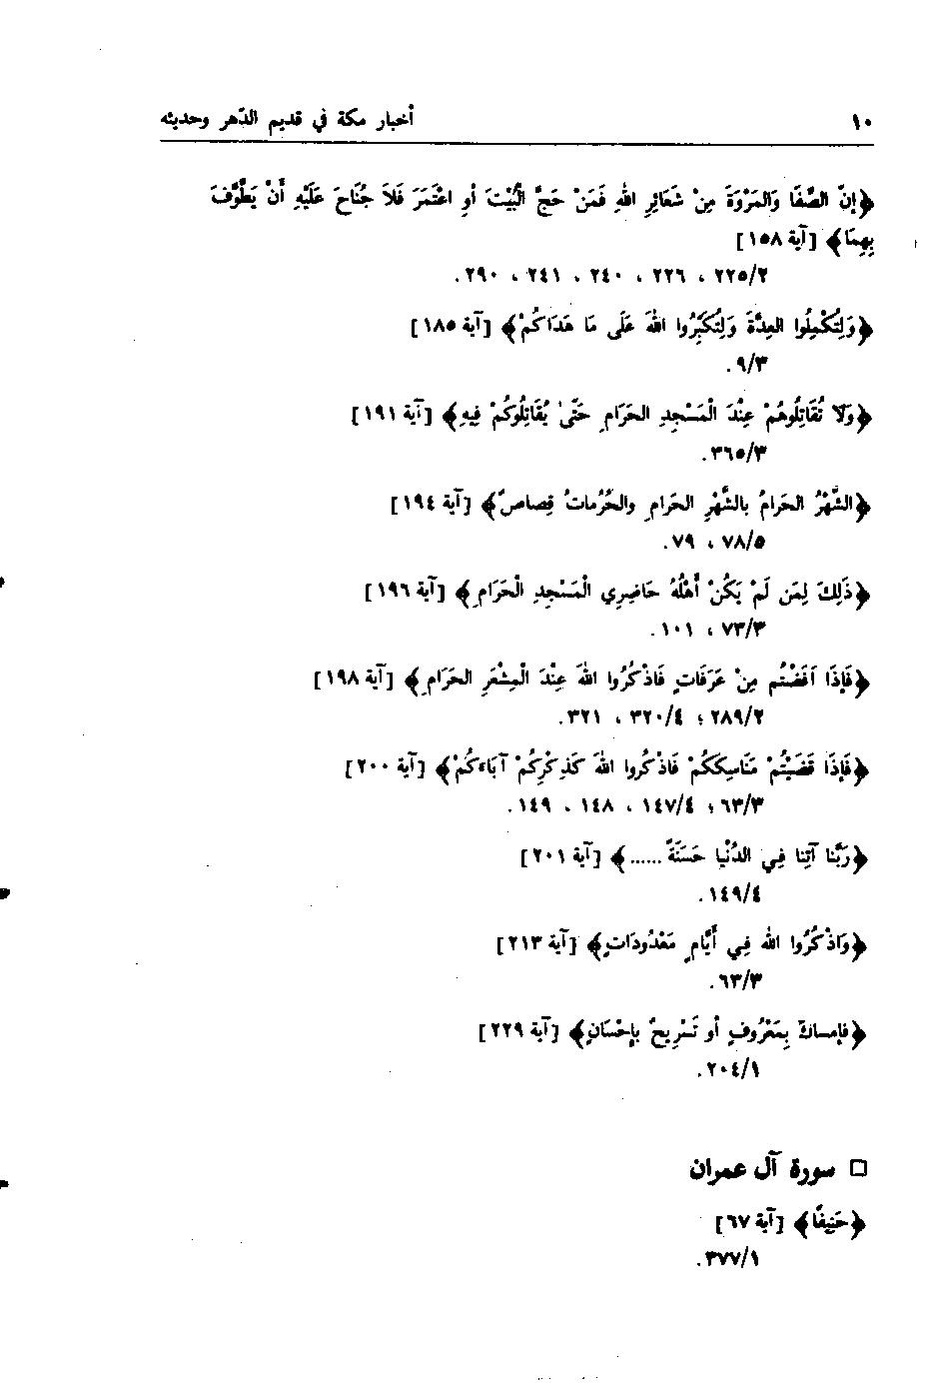 ١٠ أخبار مكة في قديم الدّهر وحديثه
﴿إنّ الصَّفَا وَالمَرْوَةَ مِنْ شَعَائِرِ اللهِ فَمَنْ حَجَّ الْبَيْتَ أوِ اعْتَمَرَ فَلاَ جُنَاحَ عَلَيْهِ أَنْ يَطَّوَّفَ
بِهِمَا﴾ [آية ١٥٨]
٢٢٥/٢ ، ٢٢٦ ، ٢٤٠ ، ٢٤١ ، ٢٩٠.
﴿وَلِتُكْمِلُوا العِدَّةَ وَلِتُكَبِّرُوا اللهَ عَلَى مَا هَدَاكُمْ﴾ [آية ١٨٥]
٩/٣.
﴿وَلَا تُقَاتِلُوهُمْ عِنْدَ الْمَسْجِدِ الحَرَامِ حَتَّىٰ يُقَاتِلُوكُمْ فِيهِ﴾ [آية ١٩١]
٣٦٥/٣.
﴿الشَّهْرُ الحَرامُ بالشَّهْرِ الحَرامِ والحُرُماتُ قِصاصٌ﴾ [آية ١٩٤]
٧٨/٥ ، ٧٩.
﴿ذَلِكَ لِمَن لَمْ يَكُنْ أَهْلُهُ حَاضِرِي الْمَسْجِدِ الْحَرَامِ﴾ [آية ١٩٦]
٧٣/٣ ، ١٠١.
﴿فَإِذَا أَفَضْتُم مِنْ عَرَفَاتٍ فَاذْكُرُوا اللهَ عِنْدَ الْمِشْعَرِ الحَرَامِ﴾ [آية ١٩٨]
٢٨٩/٢ ؛ ٣٢٠/٤ ، ٣٢١.
﴿فَإِذَا قَضَيْتُمْ مَنَاسِكَكُمْ فَاذْكُروا اللهَ كَذِكْرِكُمْ آبَاءَكُمْ﴾ [آية ٢٠٠]
٦٣/٣ ؛ ١٤٧/٤ ، ١٤٨ ، ١٤٩.
﴿رَبَّنا آتِنا فِي الدُّنْيا حَسَنَةً ......﴾ [آية ٢٠١]
١٤٩/٤.
﴿وَاذْكُرُوا اللهَ فِي أَيَّامٍ مَعْدُودَاتٍ﴾ [آية ٢١٣]
٦٣/٣.
﴿فإمساكٌ بِمَعْرُوفٍ أو تَسْرِيحٌ بإحْسَانٍ﴾ [آية ٢٢٩]
٢٠٤/١.
□ سورة آل عمران
﴿حَنِيفًا﴾ [آية ٦٧]
٣٧٧/١.